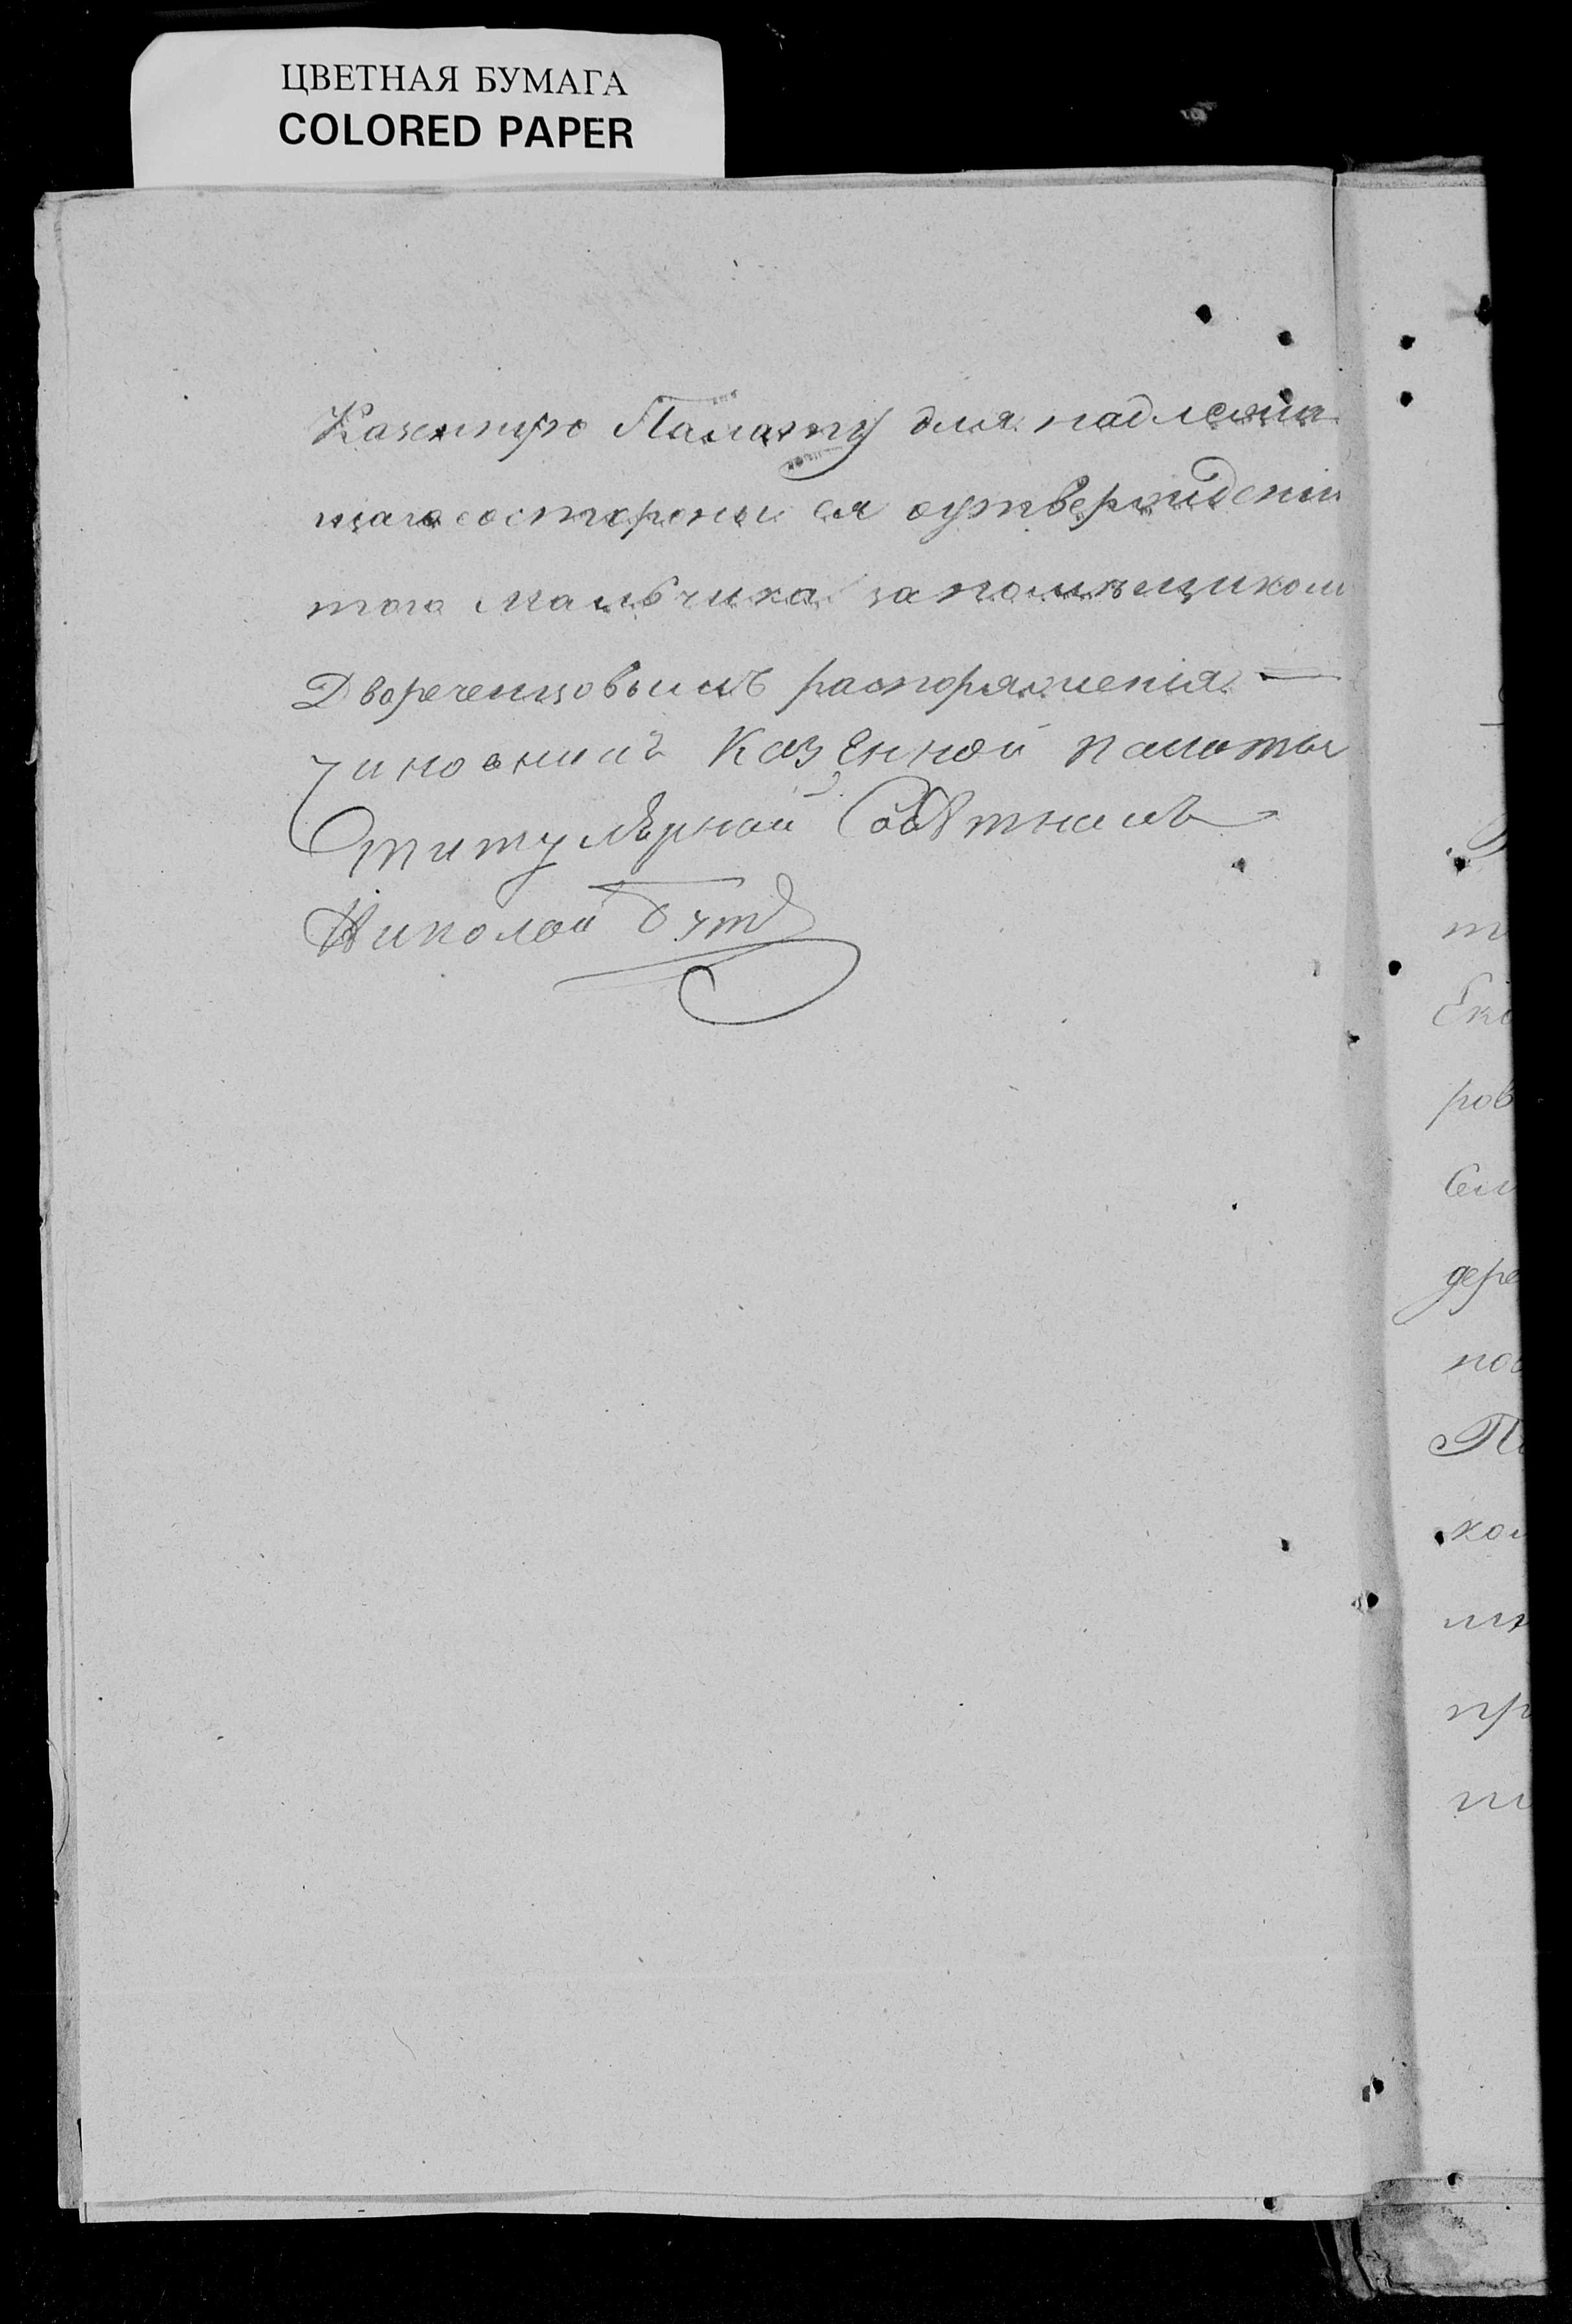 ЦВЕТНАЯ БУМАГА
COLORED PAPER
Казенную Палату для надлежа
щаго состороны ея оутвержденіи
того мальчика запомѣщиком
Дворченцовымъ распоряженія —
чиновникъ Казенной палаты
титулярной Совѣтникъ
Николай
Ека
ров
Сем
дере
пов
По
ком
мѣ
пр